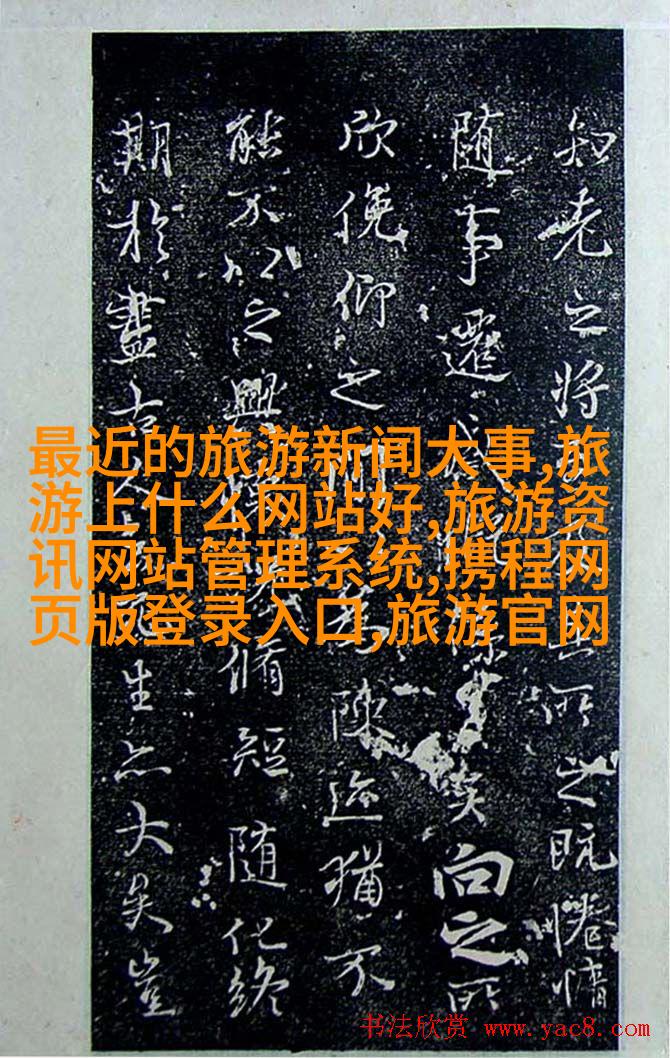 知老之將所之既惓情
随事遷感慨係之矣向之所
欣俛仰之間陳迹猶不
能不以之興脩短随化終
期於盡古人生亦大矣豈
最近的旅游新闻大事,旅
游上什么网站好,旅游资
讯网站管理系统,携程网
页版登录入口,旅游官网
书法欣赏 www.yac8.com